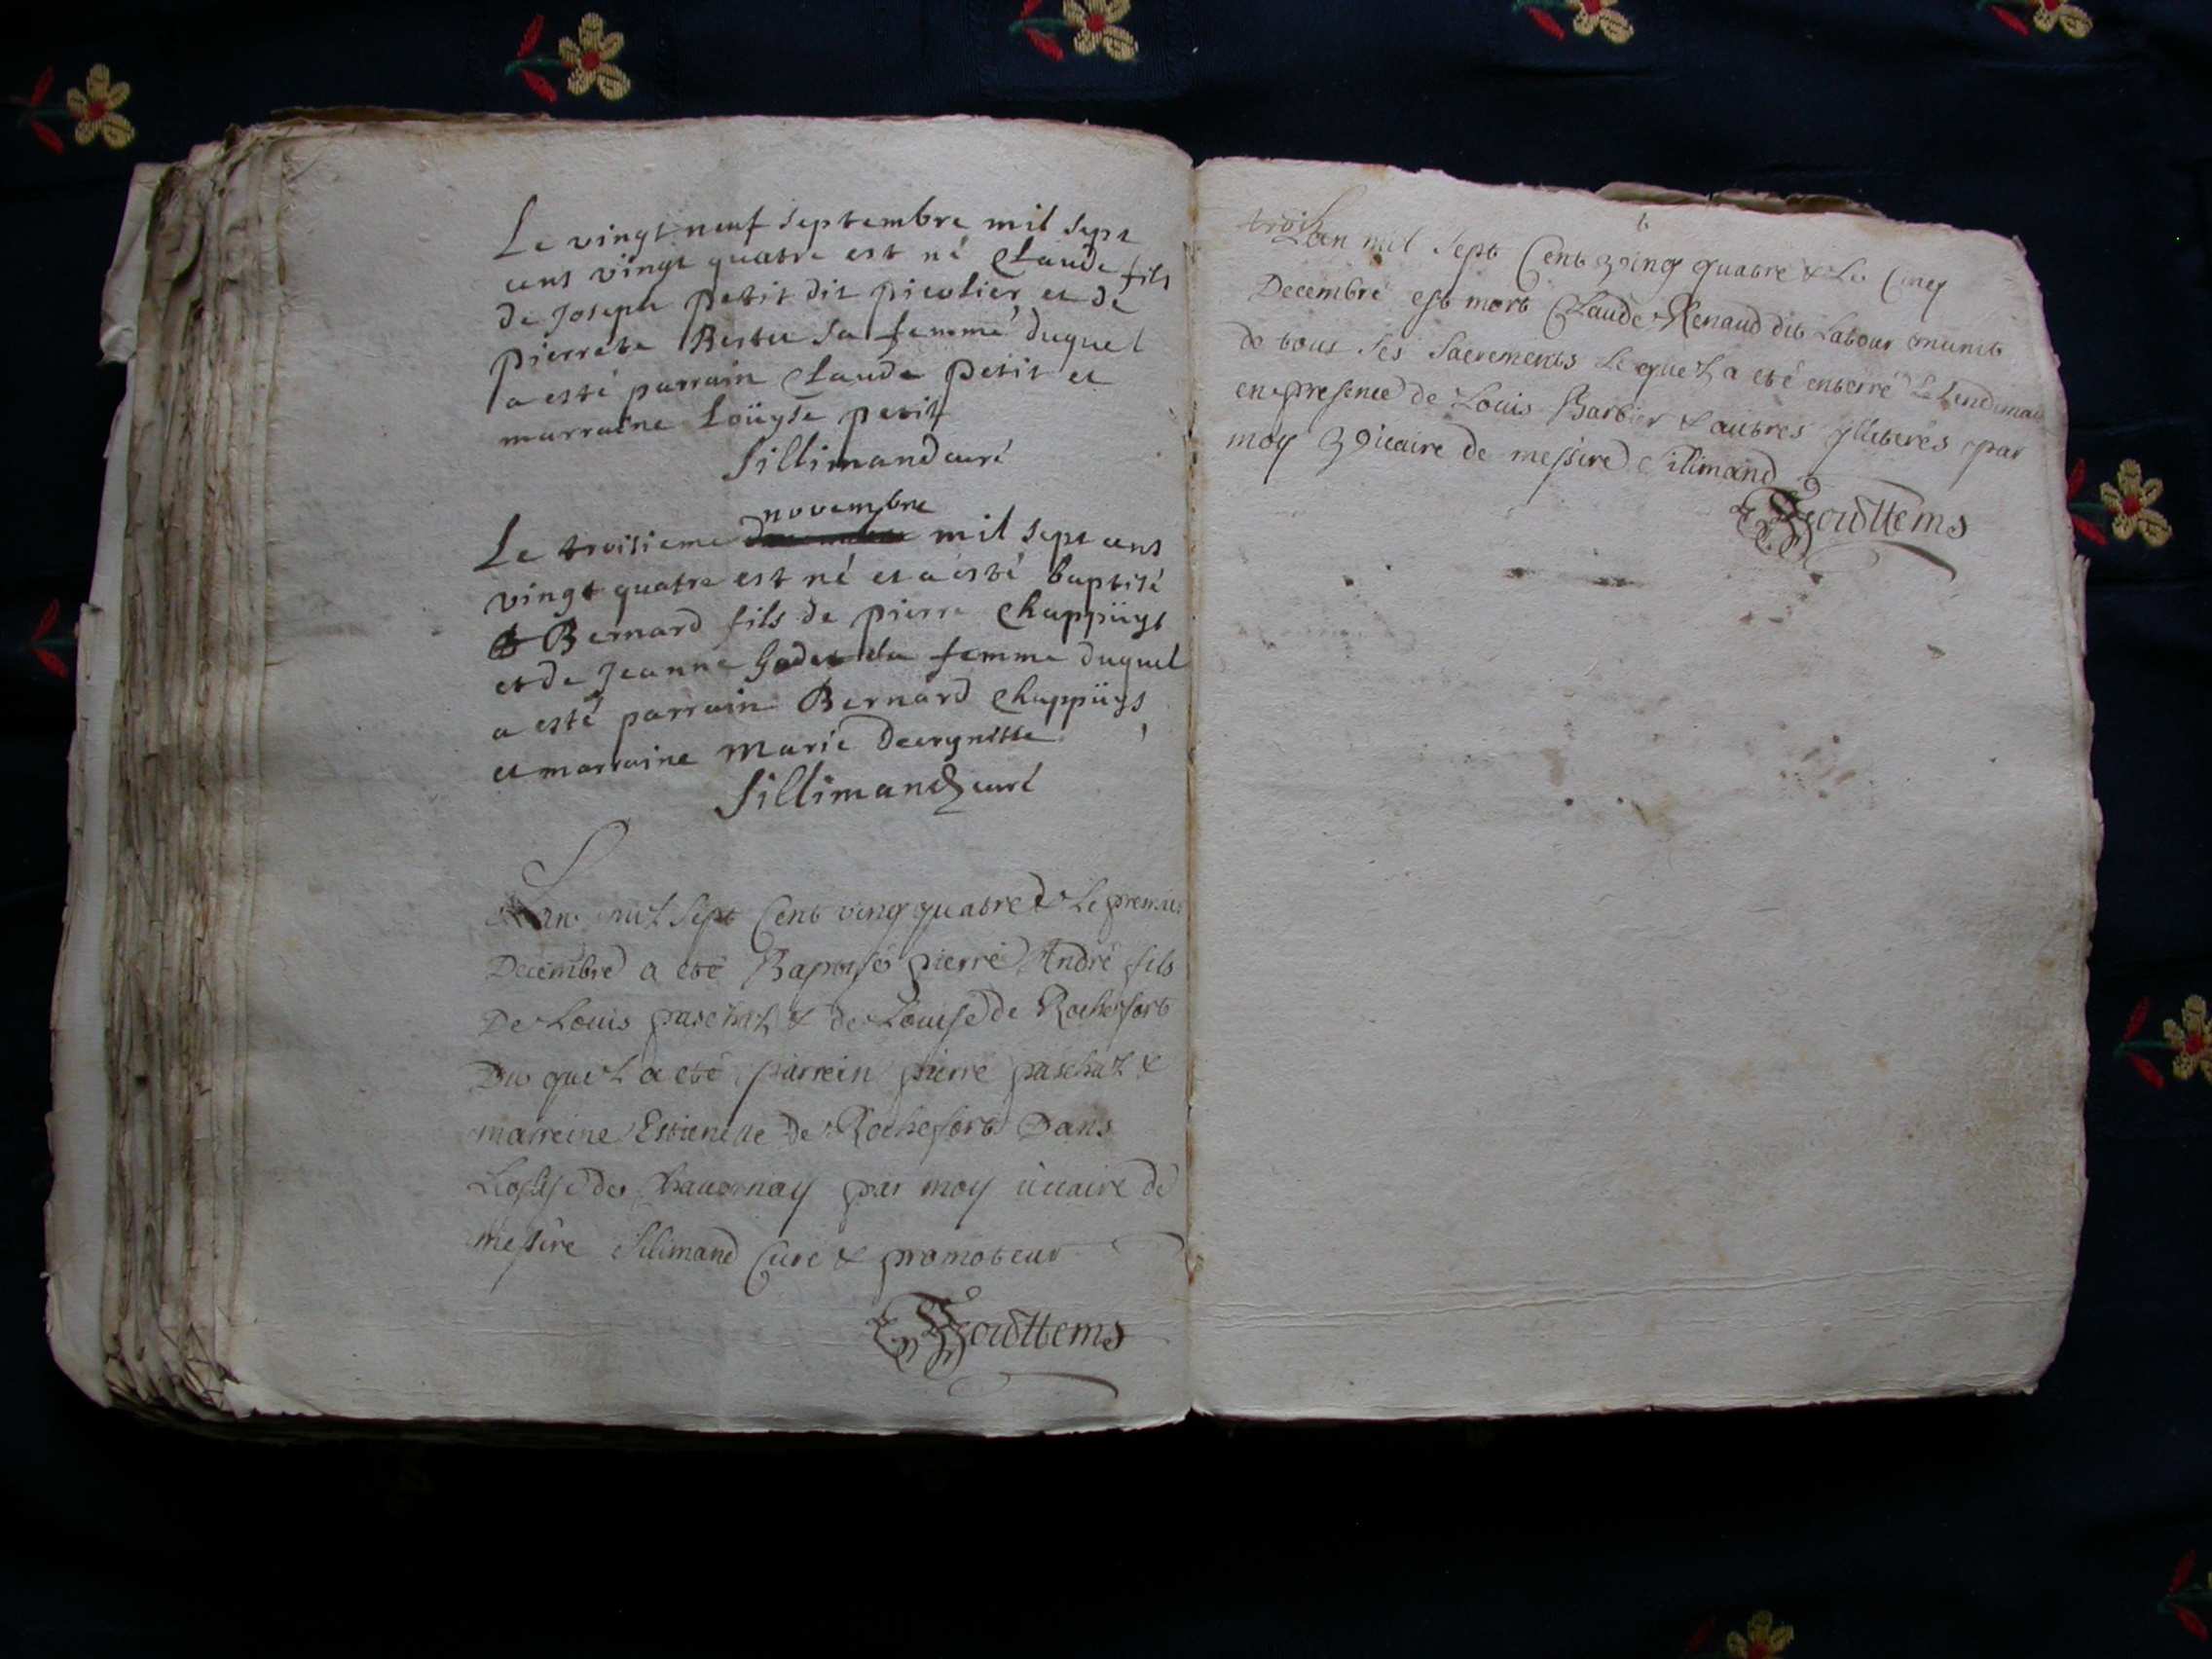 Le vingt neuf septembre mil sept
cens vingt quatre est né Claude fils
de Joseph petit dit picolier et de
pierrete Bertu sa femme duquel
a esté parrain Claude petit et
marraine Loüyse petit
Sillimand curé
novembre
Le troisieme mil sept cens
vingt quatre est né et a esté baptisé
Bernard fils de pierre Chappüys
et de Jeanne Godet sa femme duquel
a esté parrain Bernard Chappüys
et marraine Marie
Sillimand curé
Lan mil Sept Cent ving quatre & Le premier
Decembre a eté Baptisé pierre André fils
De Louis paschal & de Louise de Rochefort
Du quel a eté parrein pierre paschal &
marreine Estienette De Rochefort Dans
Leglise de Chauornay par moy uicaire de
Messire Silimand Curé & promoteur
trois
Lan mil Sept Cent ving quatre & Le Cinq
Decembre est mort Claude Renaud dit Latour munit
de tous ses Sacrements Le quel a eté enterré Le Lendemain
en presence de Louis Barbier & autres Illiterés par
moy Vicaire de messire Silimand